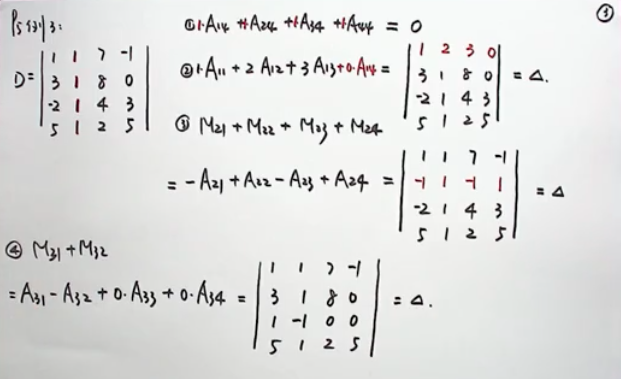 P5 例3:
D= | 1 1 7 -1 |
| 3 1 8 0 |
| -2 1 4 3 |
| 5 1 2 5 |
① 1·A14 + 1·A24 + 1·A34 + 1·A44 = 0
② 1·A11 + 2 A12 + 3 A13 + 0·A14 = | 1 2 3 0 |
| 3 1 8 0 | = Δ.
| -2 1 4 3 |
| 5 1 2 5 |
③ M21 + M22 + M23 + M24
= -A21 + A22 - A23 + A24 = | 1 1 7 -1 |
| -1 1 -1 1 | = Δ
| -2 1 4 3 |
| 5 1 2 5 |
④ M31 + M32
= A31 - A32 + 0·A33 + 0·A34 = | 1 1 7 -1 |
| 3 1 8 0 | = Δ.
| 1 -1 0 0 |
| 5 1 2 5 |